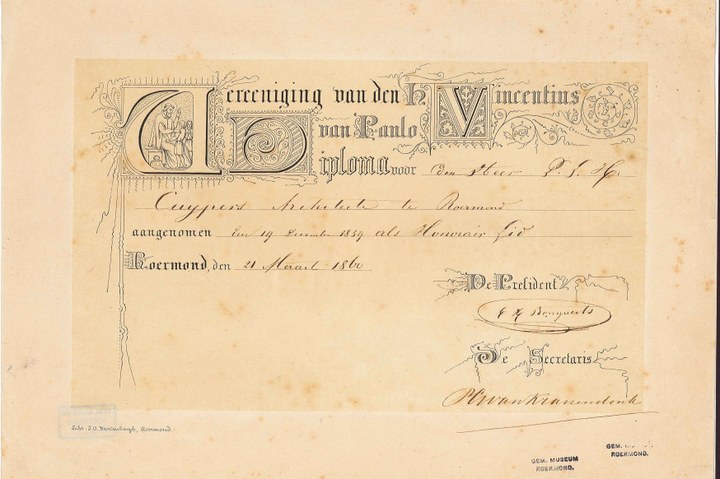 Vereeniging van den H. Vincentius
van Paulo
Diploma voor den Heer P. J. H.
Cuypers Architect te Roermond
aangenomen den 19 December 1859 als Honorair Lid
Roermond, den 21 Maart 1860
De President,
De Secretaris
GEM. MUSEUM
ROERMOND.
GEM.
ROERMOND.